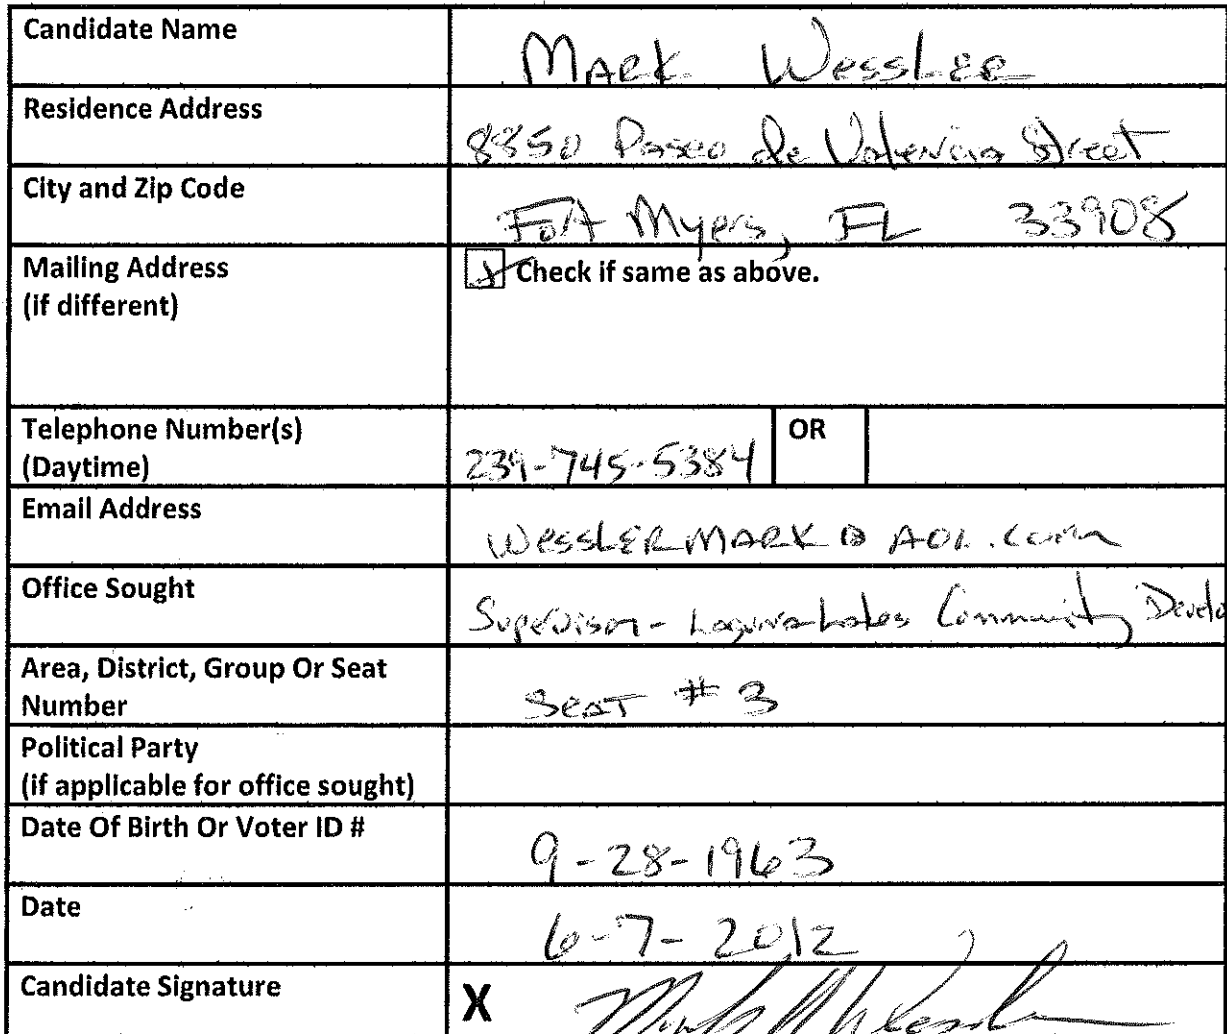 Candidate Name Mark Wessler
Residence Address 8850 Paseo de Valencia Street
City and Zip Code Fort Myers, FL 33908
Mailing Address
(if different)
Check if same as above.
Telephone Number(s)
(Daytime)
239-745-5384 OR
Email Address WESSLERMARK@AOL.com
Office Sought Supervisor - Laguna Lakes Community Develo
Area, District, Group Or Seat
Number
Seat # 3
Political Party
(if applicable for office sought)
Date Of Birth Or Voter ID # 9-28-1963
Date 6-7-2012
Candidate Signature X